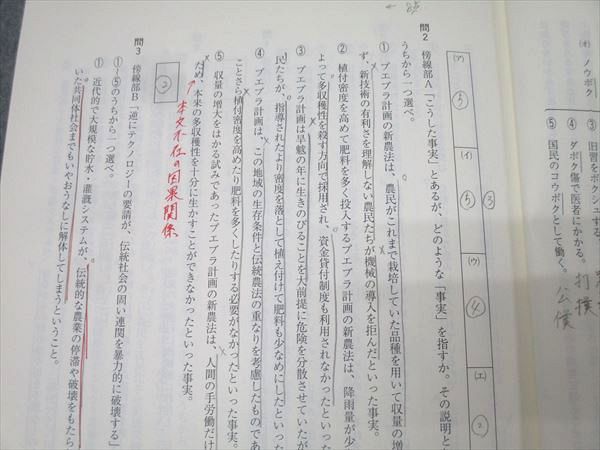 (オ) ノウボク
③ 旧習をボクシュする
④ ダボク傷で医者にかかる。 打撲
⑤ 国民のコウボクとして働く。 公僕
③
(ア) ⑤
(イ) ⑤
(ウ) ④
(エ) ②
問2 傍線部A「こうした事実」とあるが、どのような「事実」を指すか。その説明と
うちから一つ選べ。
① プエブラ計画の新農法は、農民がこれまで栽培していた品種を用いて収量の増
ず、新技術の有利さを理解しない農民たちが機械の導入を拒んだといった事実。
② 植付密度を高めて肥料を多く投入するプエブラ計画の新農法は、降雨量が少
よって多収穫性を殺す方向で採用され、資金貸付制度も利用されなかったといっ
③ プエブラ計画は旱魃の年に生きのびることを大前提に危険を分散させていたが
民たちが、指導されたより密度を落として植え付けて肥料も少なめにしたといっ
④ プエブラ計画は、この地域の生存条件と伝統農法の重なりを考慮したものであ
ことさら植付密度を高めたり肥料を多くしたりする必要がなかったといった事実。
⑤ 収量の増大をはかる試みであったプエブラ計画の新農法は、人間の手労働だけ
ため、本来の多収穫性を十分に生かすことができなかったといった事実。
本文不在の因果関係
②
問3 傍線部B「逆にテクノロジーの要請が、伝統社会の固い連関を暴力的に破壊する」
①〜⑤のうちから一つ選べ。
① 近代的で大規模な貯水・灌漑システムが、伝統的な農業の停滞や破壊をもたら
いた共同体社会までもいやおうなしに解体してしまうということ。